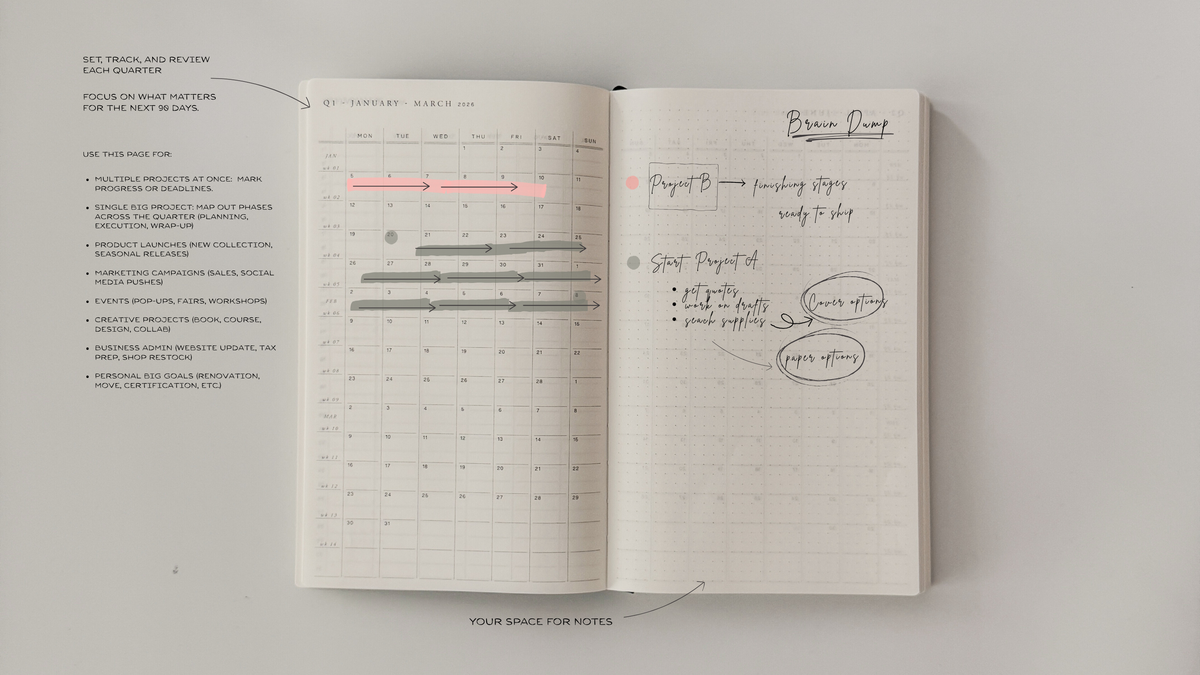 SET, TRACK, AND REVIEW
EACH QUARTER
FOCUS ON WHAT MATTERS
FOR THE NEXT 90 DAYS.
USE THIS PAGE FOR:
• MULTIPLE PROJECTS AT ONCE: MARK
PROGRESS OR DEADLINES.
• SINGLE BIG PROJECT: MAP OUT PHASES
ACROSS THE QUARTER (PLANNING,
EXECUTION, WRAP-UP)
• PRODUCT LAUNCHES (NEW COLLECTION,
SEASONAL RELEASES)
• MARKETING CAMPAIGNS (SALES, SOCIAL
MEDIA PUSHES)
• EVENTS (POP-UPS, FAIRS, WORKSHOPS)
• CREATIVE PROJECTS (BOOK, COURSE,
DESIGN, COLLAB)
• BUSINESS ADMIN (WEBSITE UPDATE, TAX
PREP, SHOP RESTOCK)
• PERSONAL BIG GOALS (RENOVATION,
MOVE, CERTIFICATION, ETC.)
Q1 - JANUARY - MARCH 2026
MON TUE WED THU FRI SAT SUN
JAN 1 2 3 4
5 6 7 8 9 10 11
12 13 14 15 16 17 18
19 20 21 22 23 24 25
26 27 28 29 30 31 1
FEB 2 3 4 5 6 7 8
9 10 11 12 13 14 15
16 17 18 19 20 21 22
23 24 25 26 27 28 1
MAR 2 3 4 5 6 7 8
9 10 11 12 13 14 15
16 17 18 19 20 21 22
23 24 25 26 27 28 29
30 31
Brain Dump
Project B → finishing stages
ready to ship
Start Project A
• get quotes
• work on drafts
• seach supplies
Cover options
paper options
YOUR SPACE FOR NOTES